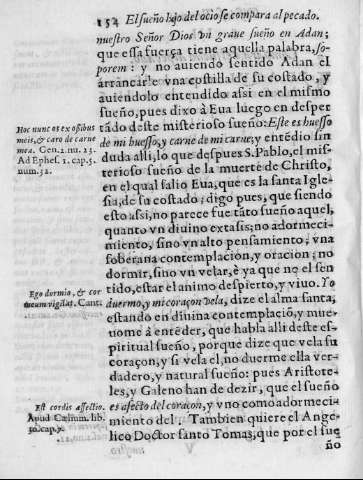 152 El sueño hijo del ocio se compara al pecado.
nuestro Señor Dios vn graue sueño en Adan;
que essa fuerça tiene aquella palabra, so-
porem: y no auiendo sentido Adan el
arrancarle vna costilla de su costado, y
auiendolo entendido assi en el mismo
sueño, pues dixo à Eua luego en desper
tãdo deste misterioso sueño: Este es huesso
de mi huesso, y carne de mi carne; y entẽdio sin
duda alli, lo que despues S. Pablo, el mis-
terioso sueño de la muerte de Christo,
en el qual salio Eua, que es la santa Igle-
sia, de su costado; digo pues, que siendo
esto assi, no parece fue tãto sueño aquel,
quanto vn diuino extasis; no adormeci-
miento, sino vn alto pensamiento; vna
soberana contemplacion, y oracion; no
dormir, sino vn velar, è ya que no el sen
tido, estar el animo despierto, y viuo. Yo
duermo, y mi coraçon vela, dize el alma santa,
estando en diuina contemplaciõ, y mue-
uome à entẽder, que habla alli deste es-
piritual sueño, porque dize que vela su
coraçon, y si vela el, no duerme ella ver-
dadero, y natural sueño: pues Aristote-
les, y Galeno han de dezir, que el sueño
es afecto del coraçon, y vno como adormeci-
miento del. Tambien quiere el Ange-
lico Doctor santo Tomas, que por el sue
ño
Hoc nunc os ex ossibus
meis, & caro de carne
mea. Gen. 2. nu. 23.
Ad Ephes. 1. cap. 5.
num. 32.
Ego dormio, & cor
meum vigilat. Canti
Est cordis affectio.
Apud Cælium. lib.